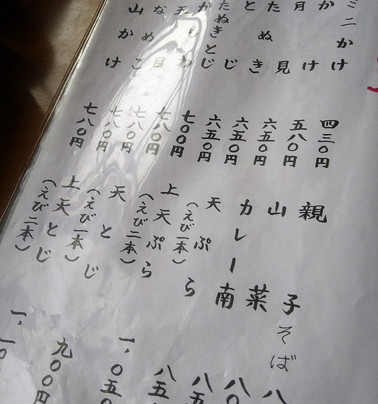 ミニかけ
かけ
月見
たぬき
たぬきとじ
山かけ
四三〇円
五八〇円
六五〇円
六五〇円
六五〇円
七〇〇円
七八〇円
七八〇円
七八〇円
親子そば
山菜
カレー南
天ぷら（えび一本）
上天ぷら（えび二本）
天とじ（えび一本）
上天とじ（えび二本）
八
八〇
八五
八五
一、〇五〇
九〇〇円